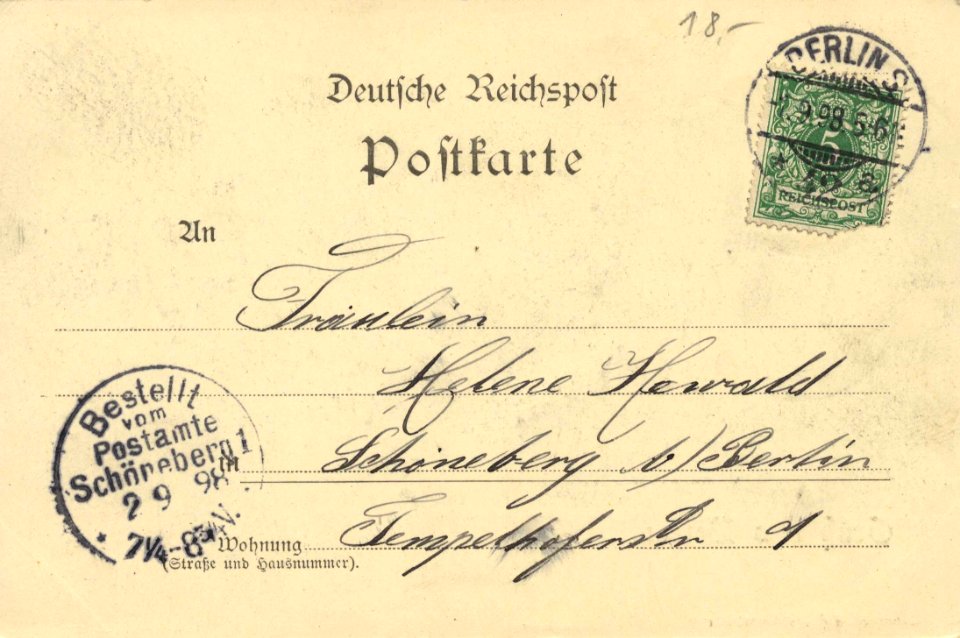 18,-
BERLIN S.W.
9.98.5-6
5
REICHSPOST
Deutsche Reichspost
Postkarte
An
Fräulein
Helene Hewald
Schöneberg b/Berlin
in
Tempelhoferstr 1
Wohnung
(Straße und Hausnummer).
Bestellt
vom
Postamte
Schöneberg 1
2 9 98
7¼-8¾V.